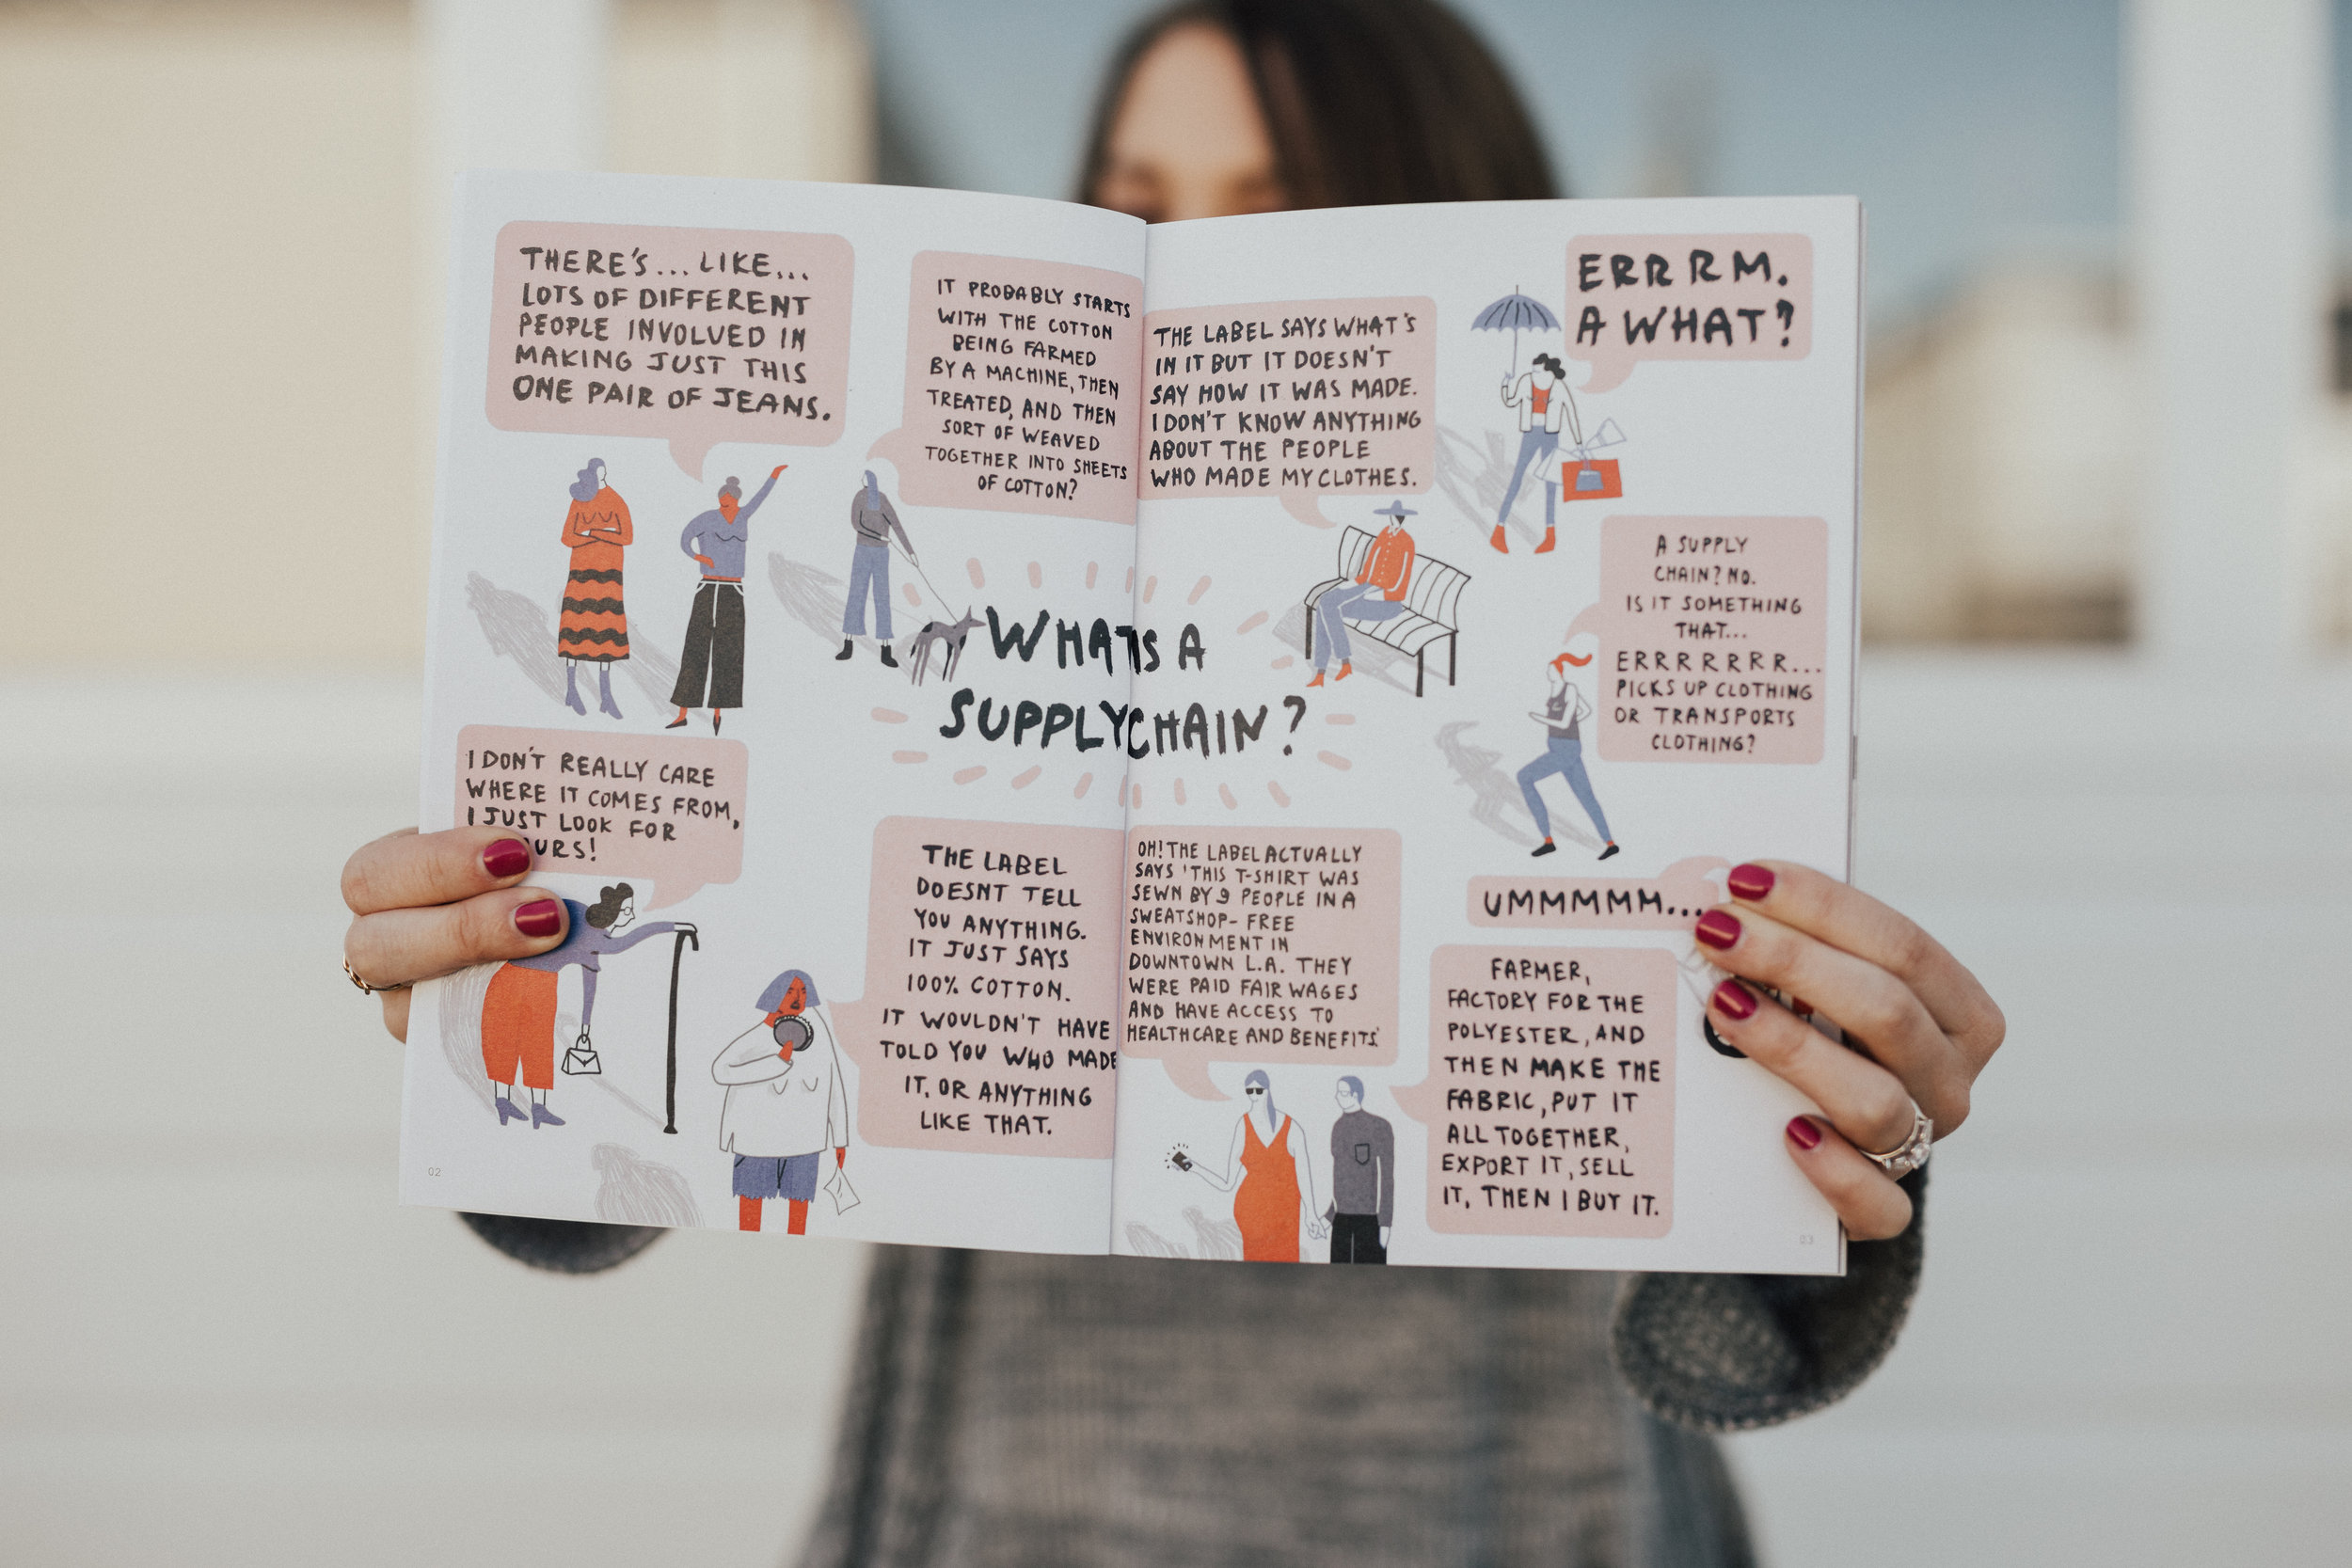 THERE'S... LIKE...
LOTS OF DIFFERENT
PEOPLE INVOLVED IN
MAKING JUST THIS
ONE PAIR OF JEANS.
IT PROBABLY STARTS
WITH THE COTTON
BEING FARMED
BY A MACHINE, THEN
TREATED, AND THEN
SORT OF WEAVED
TOGETHER INTO SHEETS
OF COTTON?
THE LABEL SAYS WHAT'S
IN IT BUT IT DOESN'T
SAY HOW IT WAS MADE.
I DON'T KNOW ANYTHING
ABOUT THE PEOPLE
WHO MADE MY CLOTHES.
ERRRM.
A WHAT?
A SUPPLY
CHAIN? NO.
IS IT SOMETHING
THAT...
ERRRRRRR...
PICKS UP CLOTHING
OR TRANSPORTS
CLOTHING?
WHATS A
SUPPLY CHAIN?
I DON'T REALLY CARE
WHERE IT COMES FROM,
I JUST LOOK FOR
THE LABEL
DOESNT TELL
YOU ANYTHING.
IT JUST SAYS
100% COTTON.
IT WOULDN'T HAVE
TOLD YOU WHO MADE
IT, OR ANYTHING
LIKE THAT.
OH! THE LABEL ACTUALLY
SAYS 'THIS T-SHIRT WAS
SEWN BY 9 PEOPLE IN A
SWEATSHOP- FREE
ENVIRONMENT IN
DOWNTOWN L.A. THEY
WERE PAID FAIR WAGES
AND HAVE ACCESS TO
HEALTHCARE AND BENEFITS.'
UMMMMM...
FARMER,
FACTORY FOR THE
POLYESTER, AND
THEN MAKE THE
FABRIC, PUT IT
ALL TOGETHER,
EXPORT IT, SELL
IT, THEN I BUY IT.
02
03